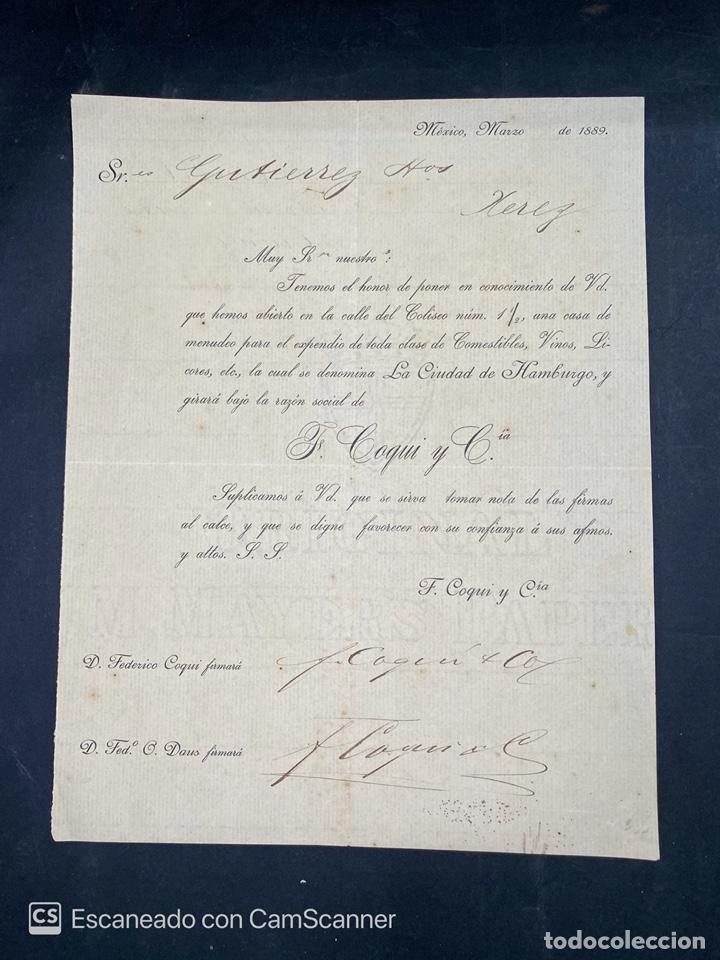 México, Marzo de 1889.
Sr.es Gutierrez Hos
Xerez
Muy Sr nuestro:
Tenemos el honor de poner en conocimiento de Vd.
que hemos abierto en la calle del Coliseo núm. 1 1/2, una casa de
menudeo para el expendio de toda clase de Comestibles, Vinos, Li-
cores, etc., la cual se denomina La Ciudad de Hamburgo, y
girará bajo la razón social de
F. Coqui y C.ía
Suplicamos á Vd. que se sirva tomar nota de las firmas
al calce, y que se digne favorecer con su confianza á sus afmos.
y attos. S. S.
F. Coqui y C.ía
D. Federico Coqui firmará F. Coqui & Co
D. Fed.o O. Daus firmará F Coqui & C
CS Escaneado con CamScanner
todocoleccion